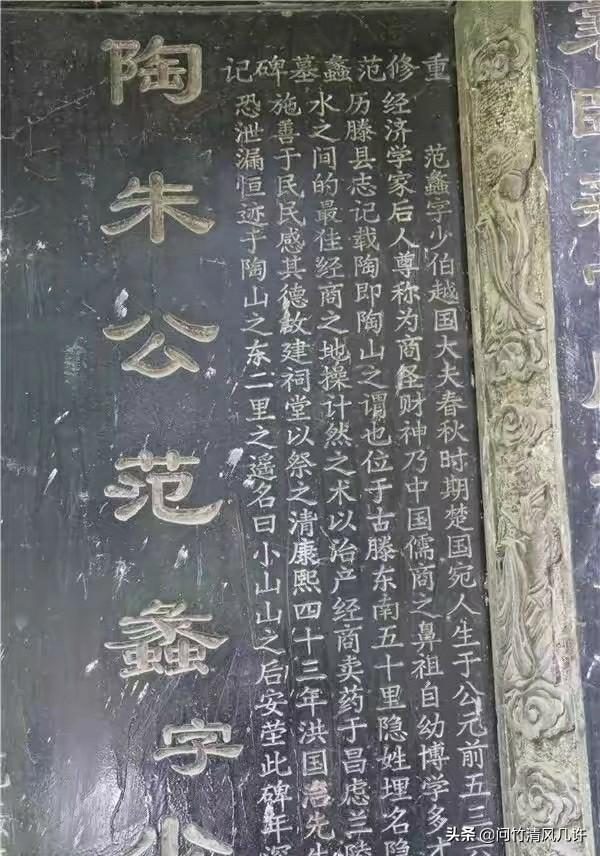 重修范蠡墓碑记
范蠡字少伯越国大夫春秋时期楚国宛人生于公元前五三
经济学家后人尊称为商圣财神乃中国儒商之鼻祖自幼博学多才
历滕县志记载陶即陶山之谓也位于古滕东南五十里隐姓埋名隐
水之间的最佳经商之地操计然之术以治产经商卖药于昌虑兰陵
施善于民民感其德故建祠堂以祭之清康熙四十三年洪国治先生
恐泄漏恒迹于陶山之东二里之遥名曰小山山之后安茔此碑年深
陶朱公范蠡字少
头条 @问竹清风几许